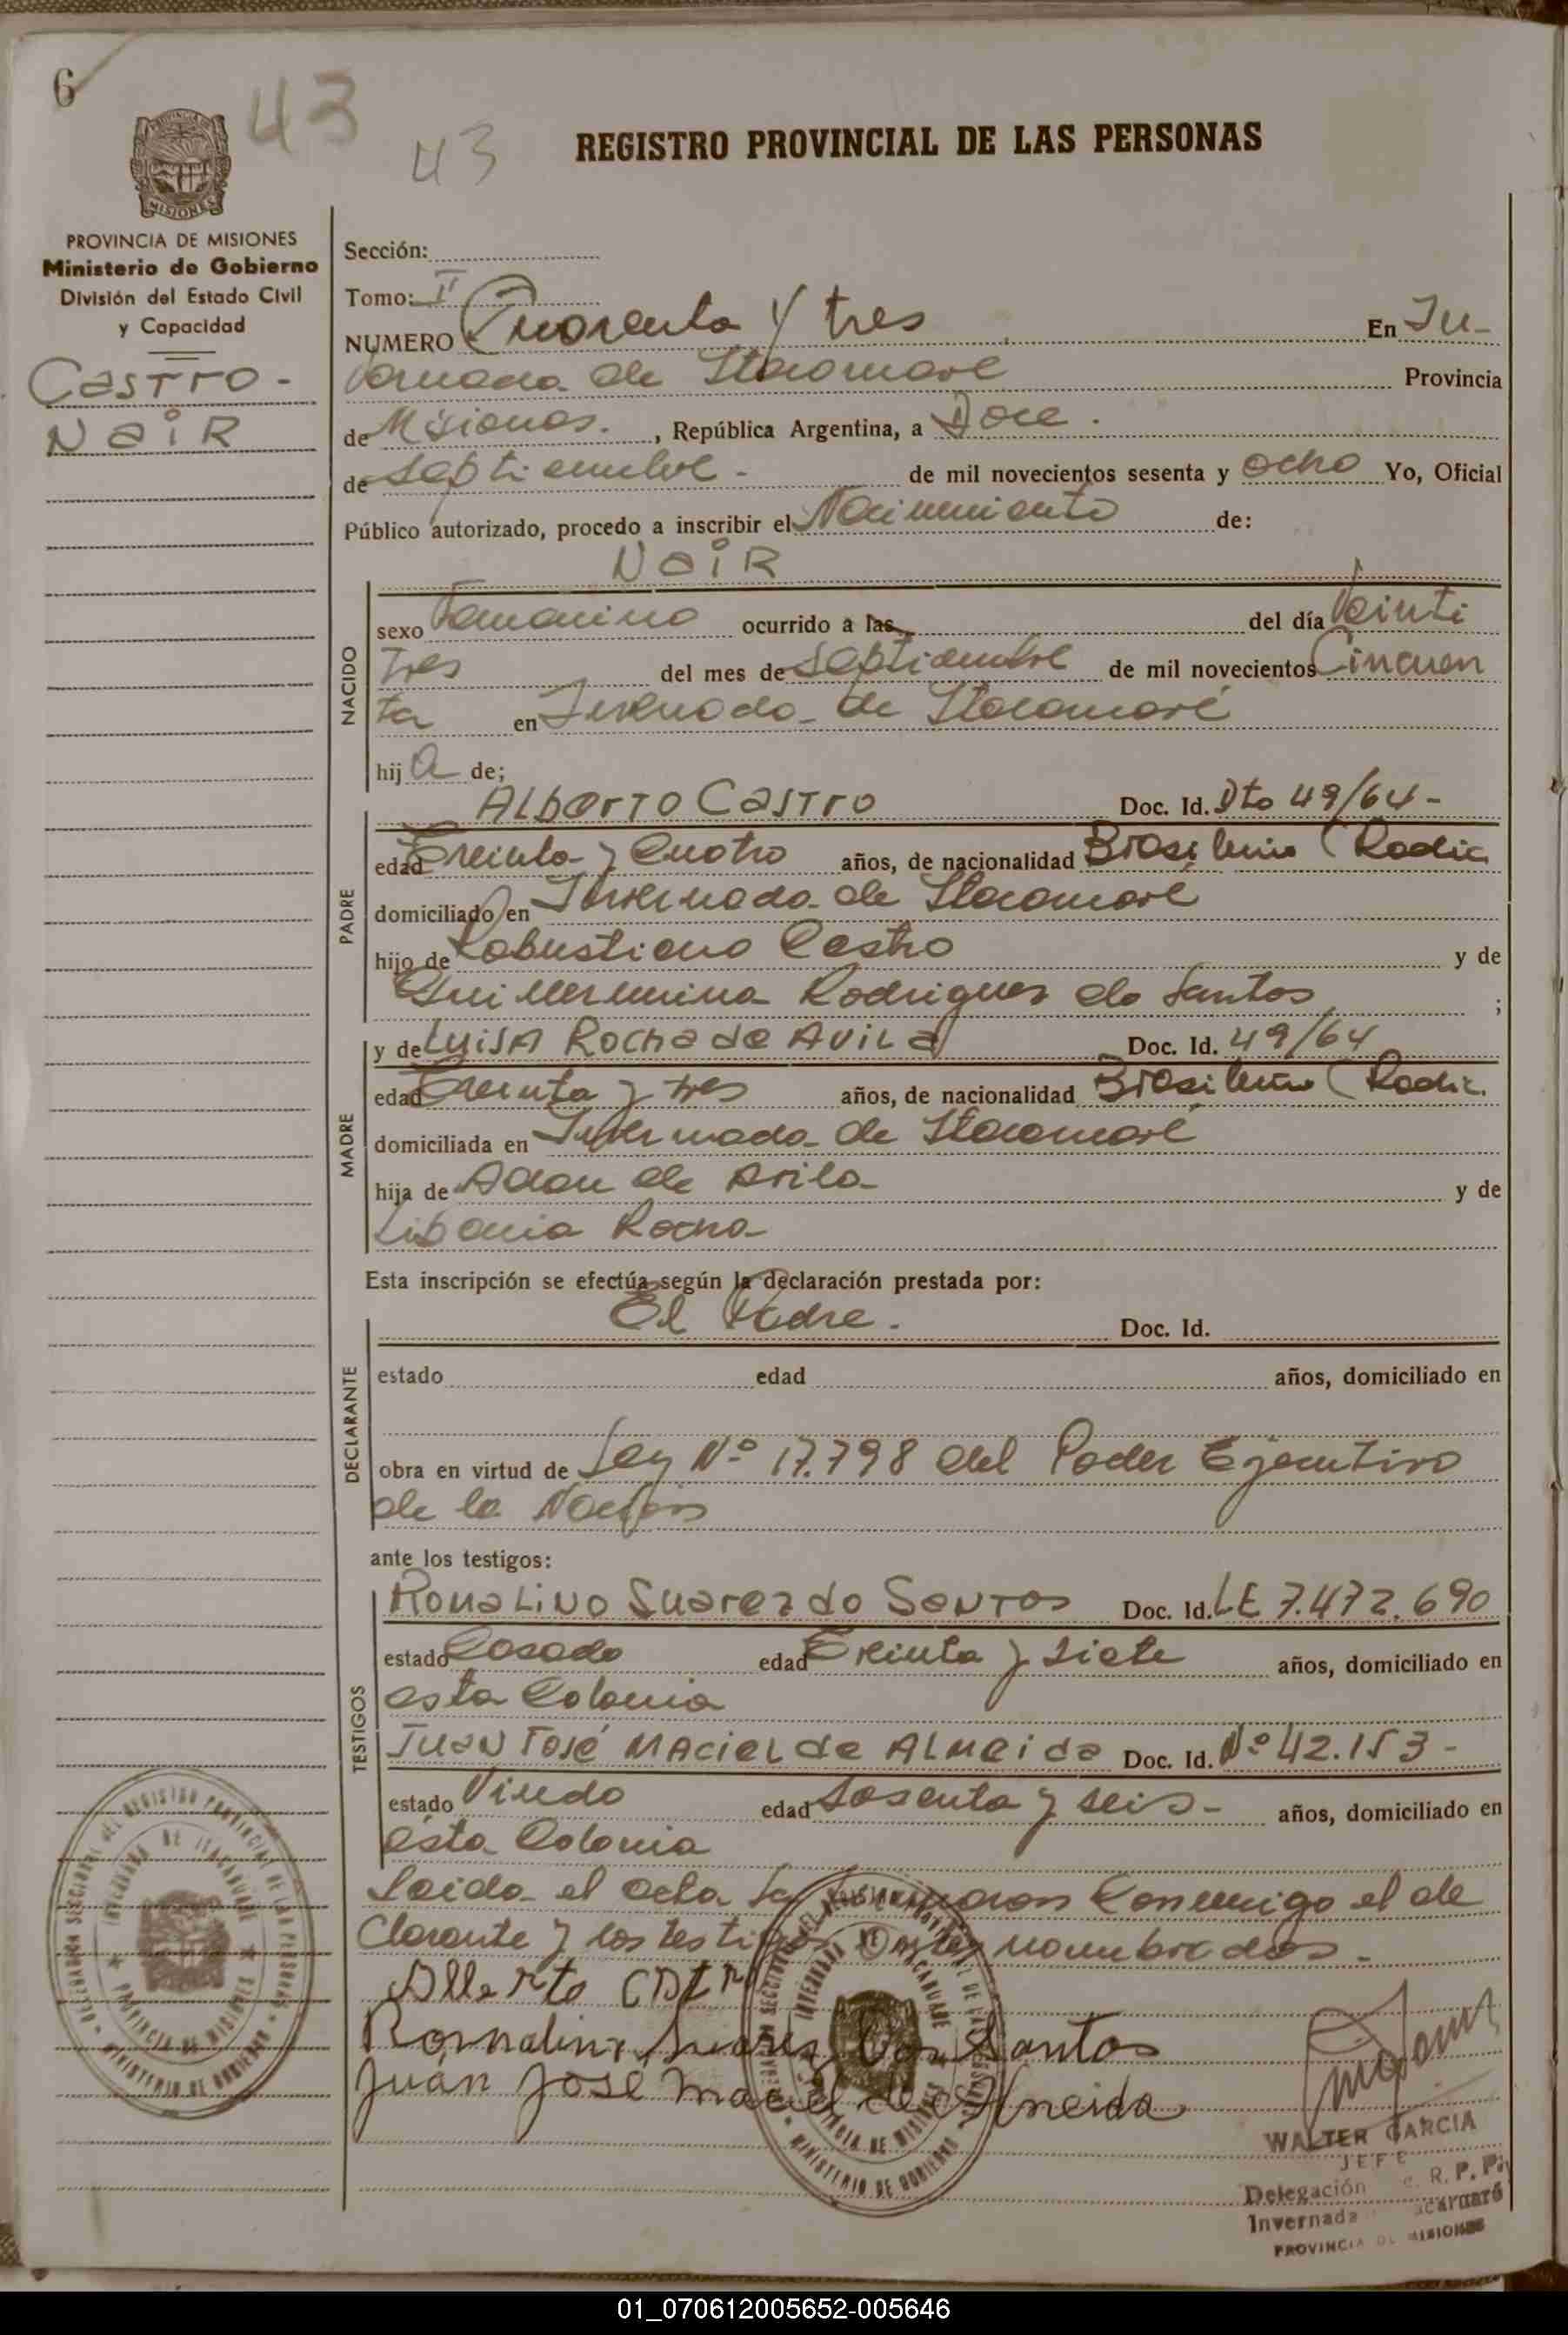 6
43
43
REGISTRO PROVINCIAL DE LAS PERSONAS
MISIONES
PROVINCIA DE MISIONES
Ministerio de Gobierno
División del Estado Civil
y Capacidad
CASTRO-
NAIR
Sección:
Tomo: II
NUMERO Cuarenta y tres En In-
vernada de Itacaruaré Provincia
de Misiones. , República Argentina, a Doce.
de septiembre - de mil novecientos sesenta y ocho Yo, Oficial
Público autorizado, procedo a inscribir el Nacimiento de:
NAIR
NACIDO
sexo Femenino ocurrido a las del día Veinti
tres del mes de septiembre de mil novecientos Cincuen
ta en Invernada de Itacaruaré
hij a de;
PADRE
ALBERTO CASTRO Doc. Id. Dto 49/64-
edad Treinta y Cuatro años, de nacionalidad Brasileño (Radic
domiciliado en Invernada de Itacaruaré
hijo de Robustiano Castro y de
Guillermina Rodrigues do Santos ;
MADRE
y de LUISA Rocha de AVILA Doc. Id. 49/64
edad Treinta y tres años, de nacionalidad Brasileña (Radic.
domiciliada en Invernada de Itacaruaré
hija de Adan de Avila y de
Libania Rocha
Esta inscripción se efectúa según la declaración prestada por:
El Padre.
Doc. Id.
DECLARANTE
estado edad años, domiciliado en
obra en virtud de Ley Nº 17.798 del Poder Ejecutivo
de la Nacion
ante los testigos:
TESTIGOS
RomaLino Suarez do Santos Doc. Id. LE 7.472.690
estado Casado edad Treinta y siete años, domiciliado en
esta Colonia
JUAN José MACIEL de ALMEIDA Doc. Id. Nº 42.153-
estado Viudo edad Sesenta y seis- años, domiciliado en
esta Colonia
Leida el acta la firmaron Conmigo el de
clarante y los testigos Antes nombrados.
Alberto
Romalino Suares Dos Santos
Juan José Maciel de Almeida
WALTER GARCIA
JEFE
Delegación R. P. P.
Invernada Itacaruaré
PROVINCIA DE MISIONES
01_070612005652-005646